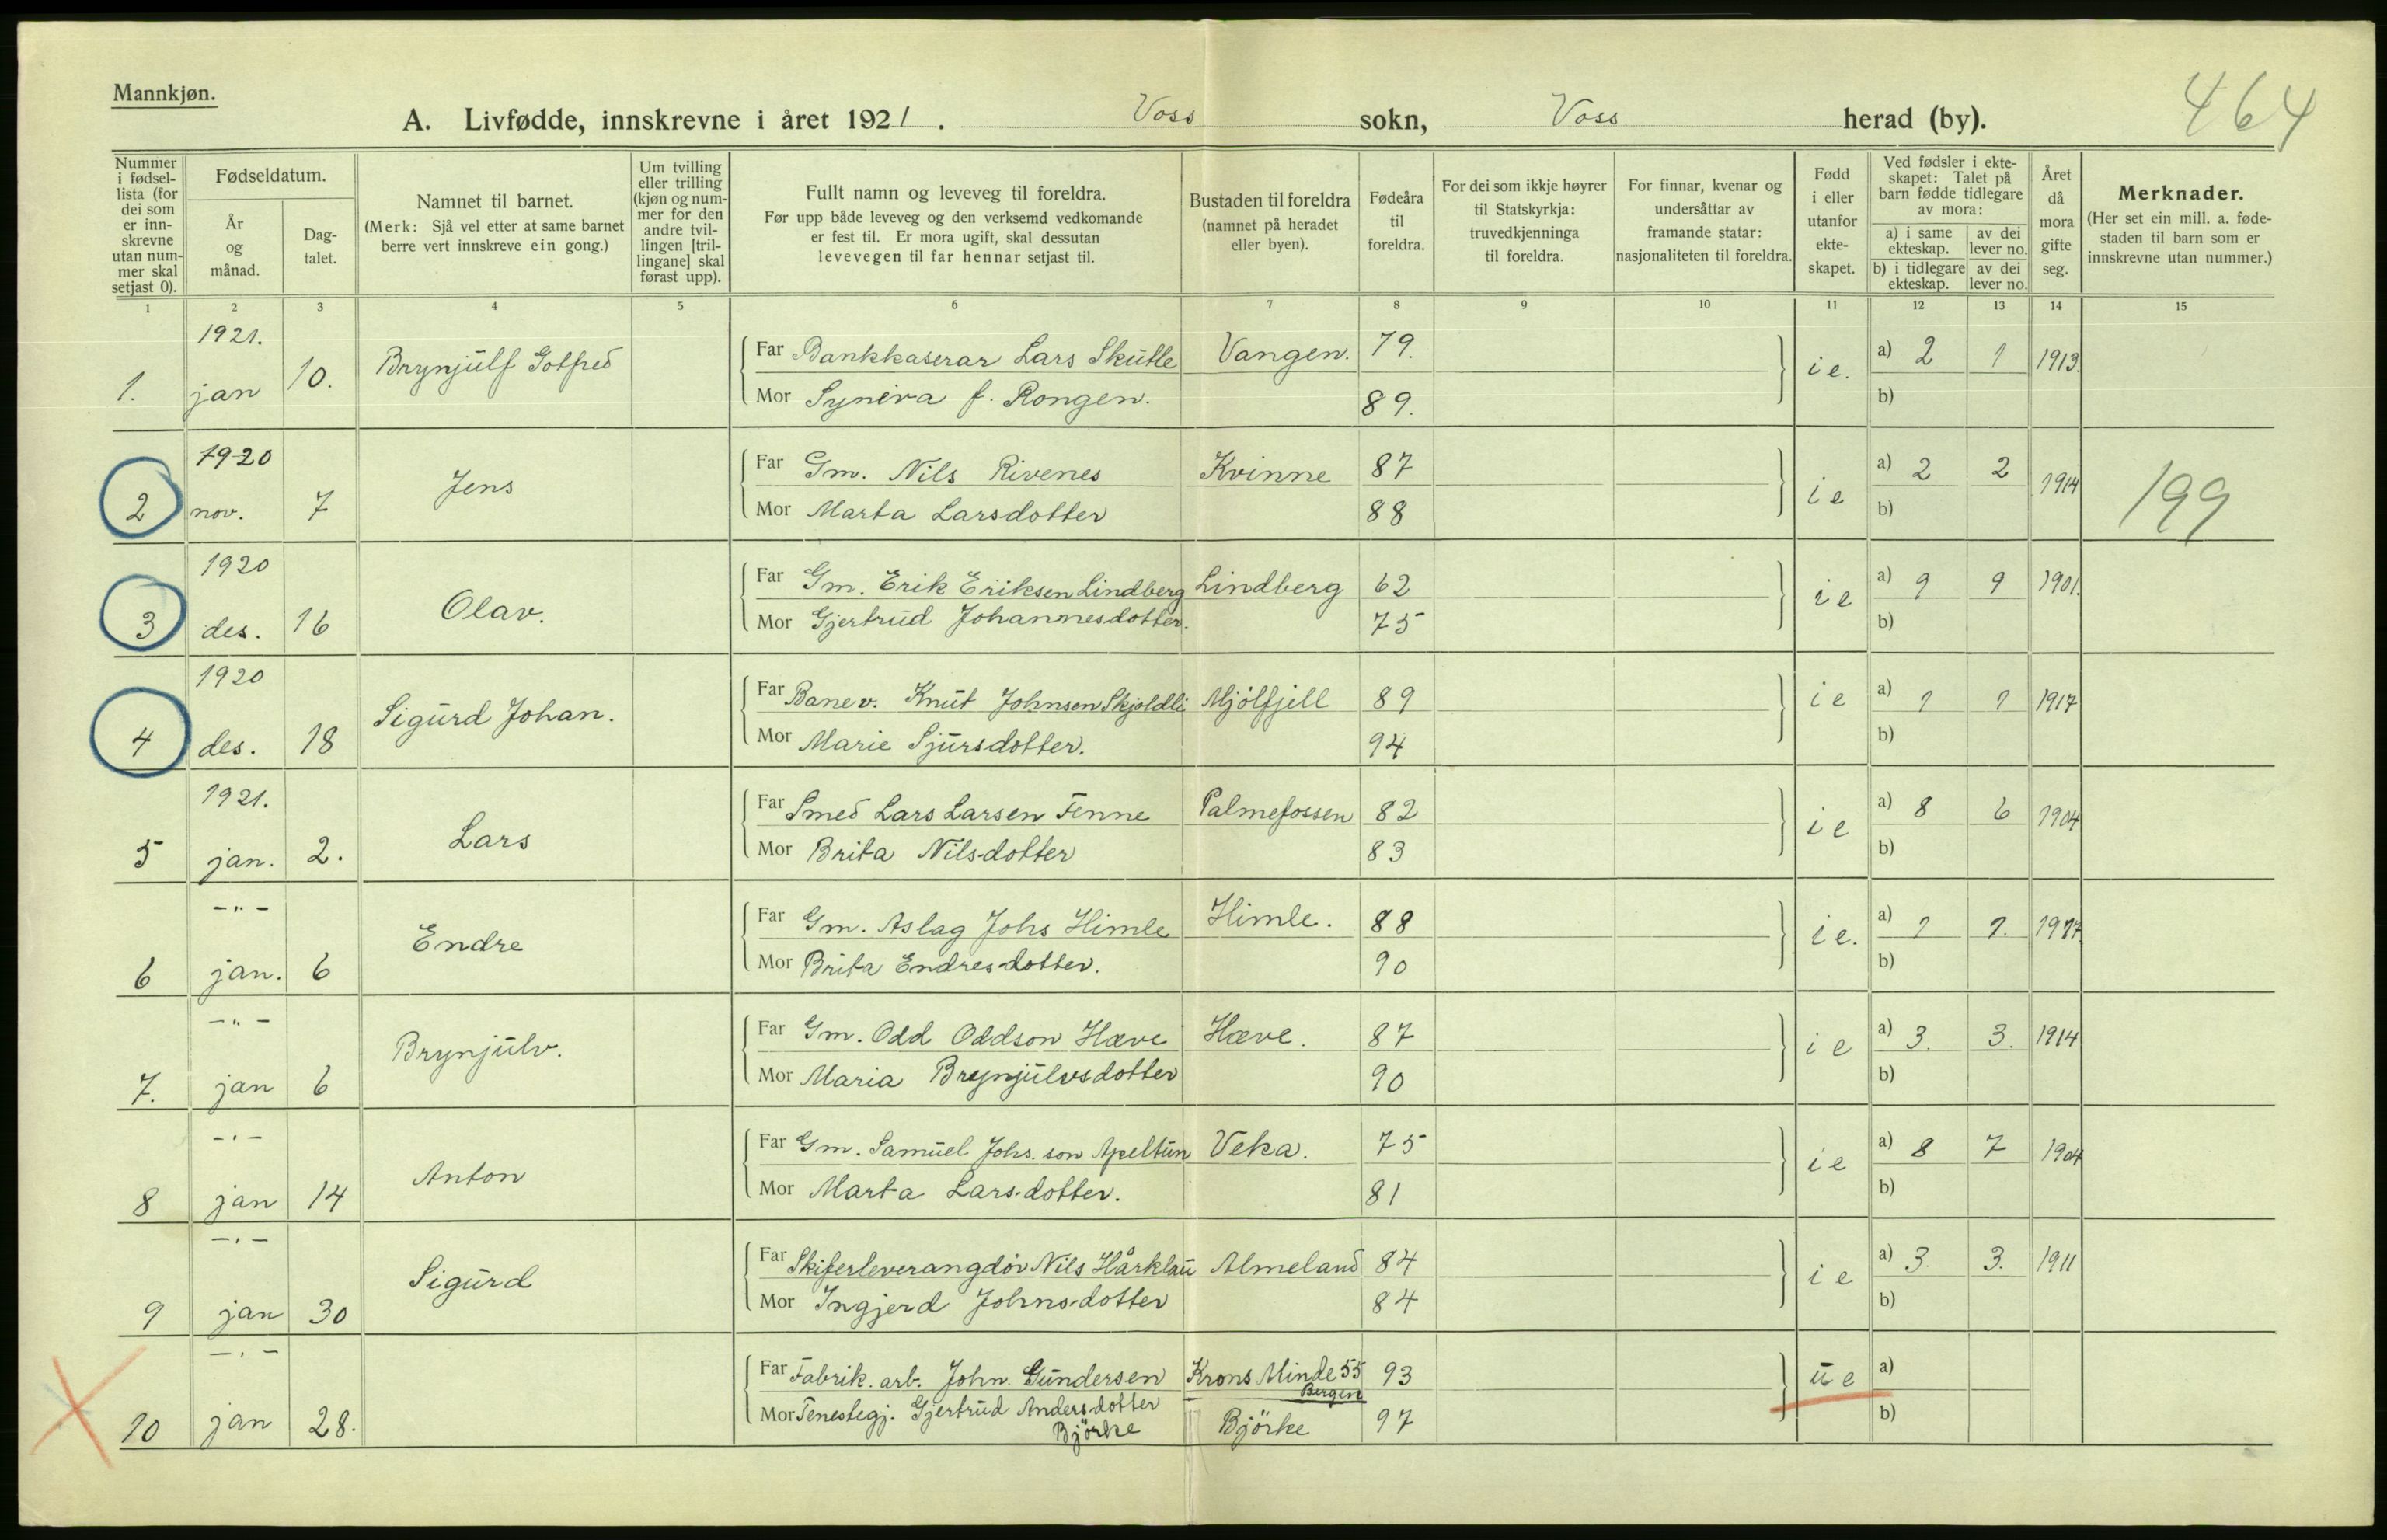 Mannkjøn.
464
A. Livfødde, innskrevne i året 1921. Voss sokn, Voss herad (by).
Nummer i fødsel-lista (for dei som er inn-skrevne utan num-mer skal setjast 0).
Fødseldatum.
År og månad.
Dag-talet.
Namnet til barnet.
(Merk: Sjå vel etter at same barnet berre vert innskreve ein gong.)
Um tvilling eller trilling (kjøn og num-mer for den andre tvil-lingen [tril-lingane] skal førast upp).
Fullt namn og leveveg til foreldra.
Før upp både leveveg og den verksemd vedkomande er fest til. Er mora ugift, skal dessutan levevegen til far hennar setjast til.
Bustaden til foreldra (namnet på heradet eller byen).
Fødeåra til foreldra.
For dei som ikkje høyrer til Statskyrkja: truvedkjenninga til foreldra.
For finnar, kvenar og undersåttar av framande statar: nasjonaliteten til foreldra.
Fødd i eller utanfor ekte-skapet.
Ved fødsler i ekte-skapet: Talet på barn fødde tidlegare av mora:
a) i same ekteskap.
av dei lever no.
b) i tidlegare ekteskap.
av dei lever no.
Året då mora gifte seg.
Merknader.
(Her set ein mill. a. føde-staden til barn som er innskrevne utan nummer.)
1 2 3 4 5 6 7 8 9 10 11 12 13 14 15
1921.
1. jan 10. Brynjülf Gotfred Far Bankkaserar Lars Skütle Vangen. 79. ie. a) 2 1 1913.
Mor Syneva f. Rongen. 89. b)
1920
2 nov. 7 Jens Far Gm. Nils Rivenes Kvinne 87 ie a) 2 2 1914 199
Mor Marta Larsdotter 88 b)
1920
3 des. 16 Olav. Far Gm. Erik Eriksen Lindberg Lindberg 62 ie a) 9 9 1901.
Mor Gjertrüd Johannesdotter. 75 b)
1920
4 des. 18 Sigürd Johan. Far Banev. Knüt Johnsen Skjoldli Mjölfjell 89 ie a) 1 1 1917
Mor Marie Sjürsdotter. 94 b)
1921.
5 jan. 2. Lars Far Smed Lars Larsen Fenne Palmefossen 82 ie a) 8 6 1904
Mor Brita Nilsdotter 83 b)
-"-
6 jan. 6 Endre Far Gm. Aslag Johs Himle Himle. 88 ie. a) 1 1. 1917
Mor Brita Endresdotter. 90 b)
-"-
7. jan 6 Brynjülv. Far Gm. Odd Oddson Hæve Hæve. 87 ie a) 3. 3. 1914
Mor Maria Brynjülvsdotter 90 b)
-"-
8 jan 14 Anton Far Gm. Samüel Johs. son Apeltün Veka. 75 ie a) 8 7 1904
Mor Marta Larsdotter. 81 b)
-"-
9 jan 30 Sigürd Far Skiferleverangdör Nils Hårklaü Almeland 84 ie a) 3. 3. 1911
Mor Ingjerd Johnsdotter 84 b)
-"-
10 jan 28. Far Fabrik. arb. John Gündersen Krons Minde 55 Bergen 93 üe a)
Mor Tenestegj. Gjertrüd Andersdotter Björke Björke 97 b)